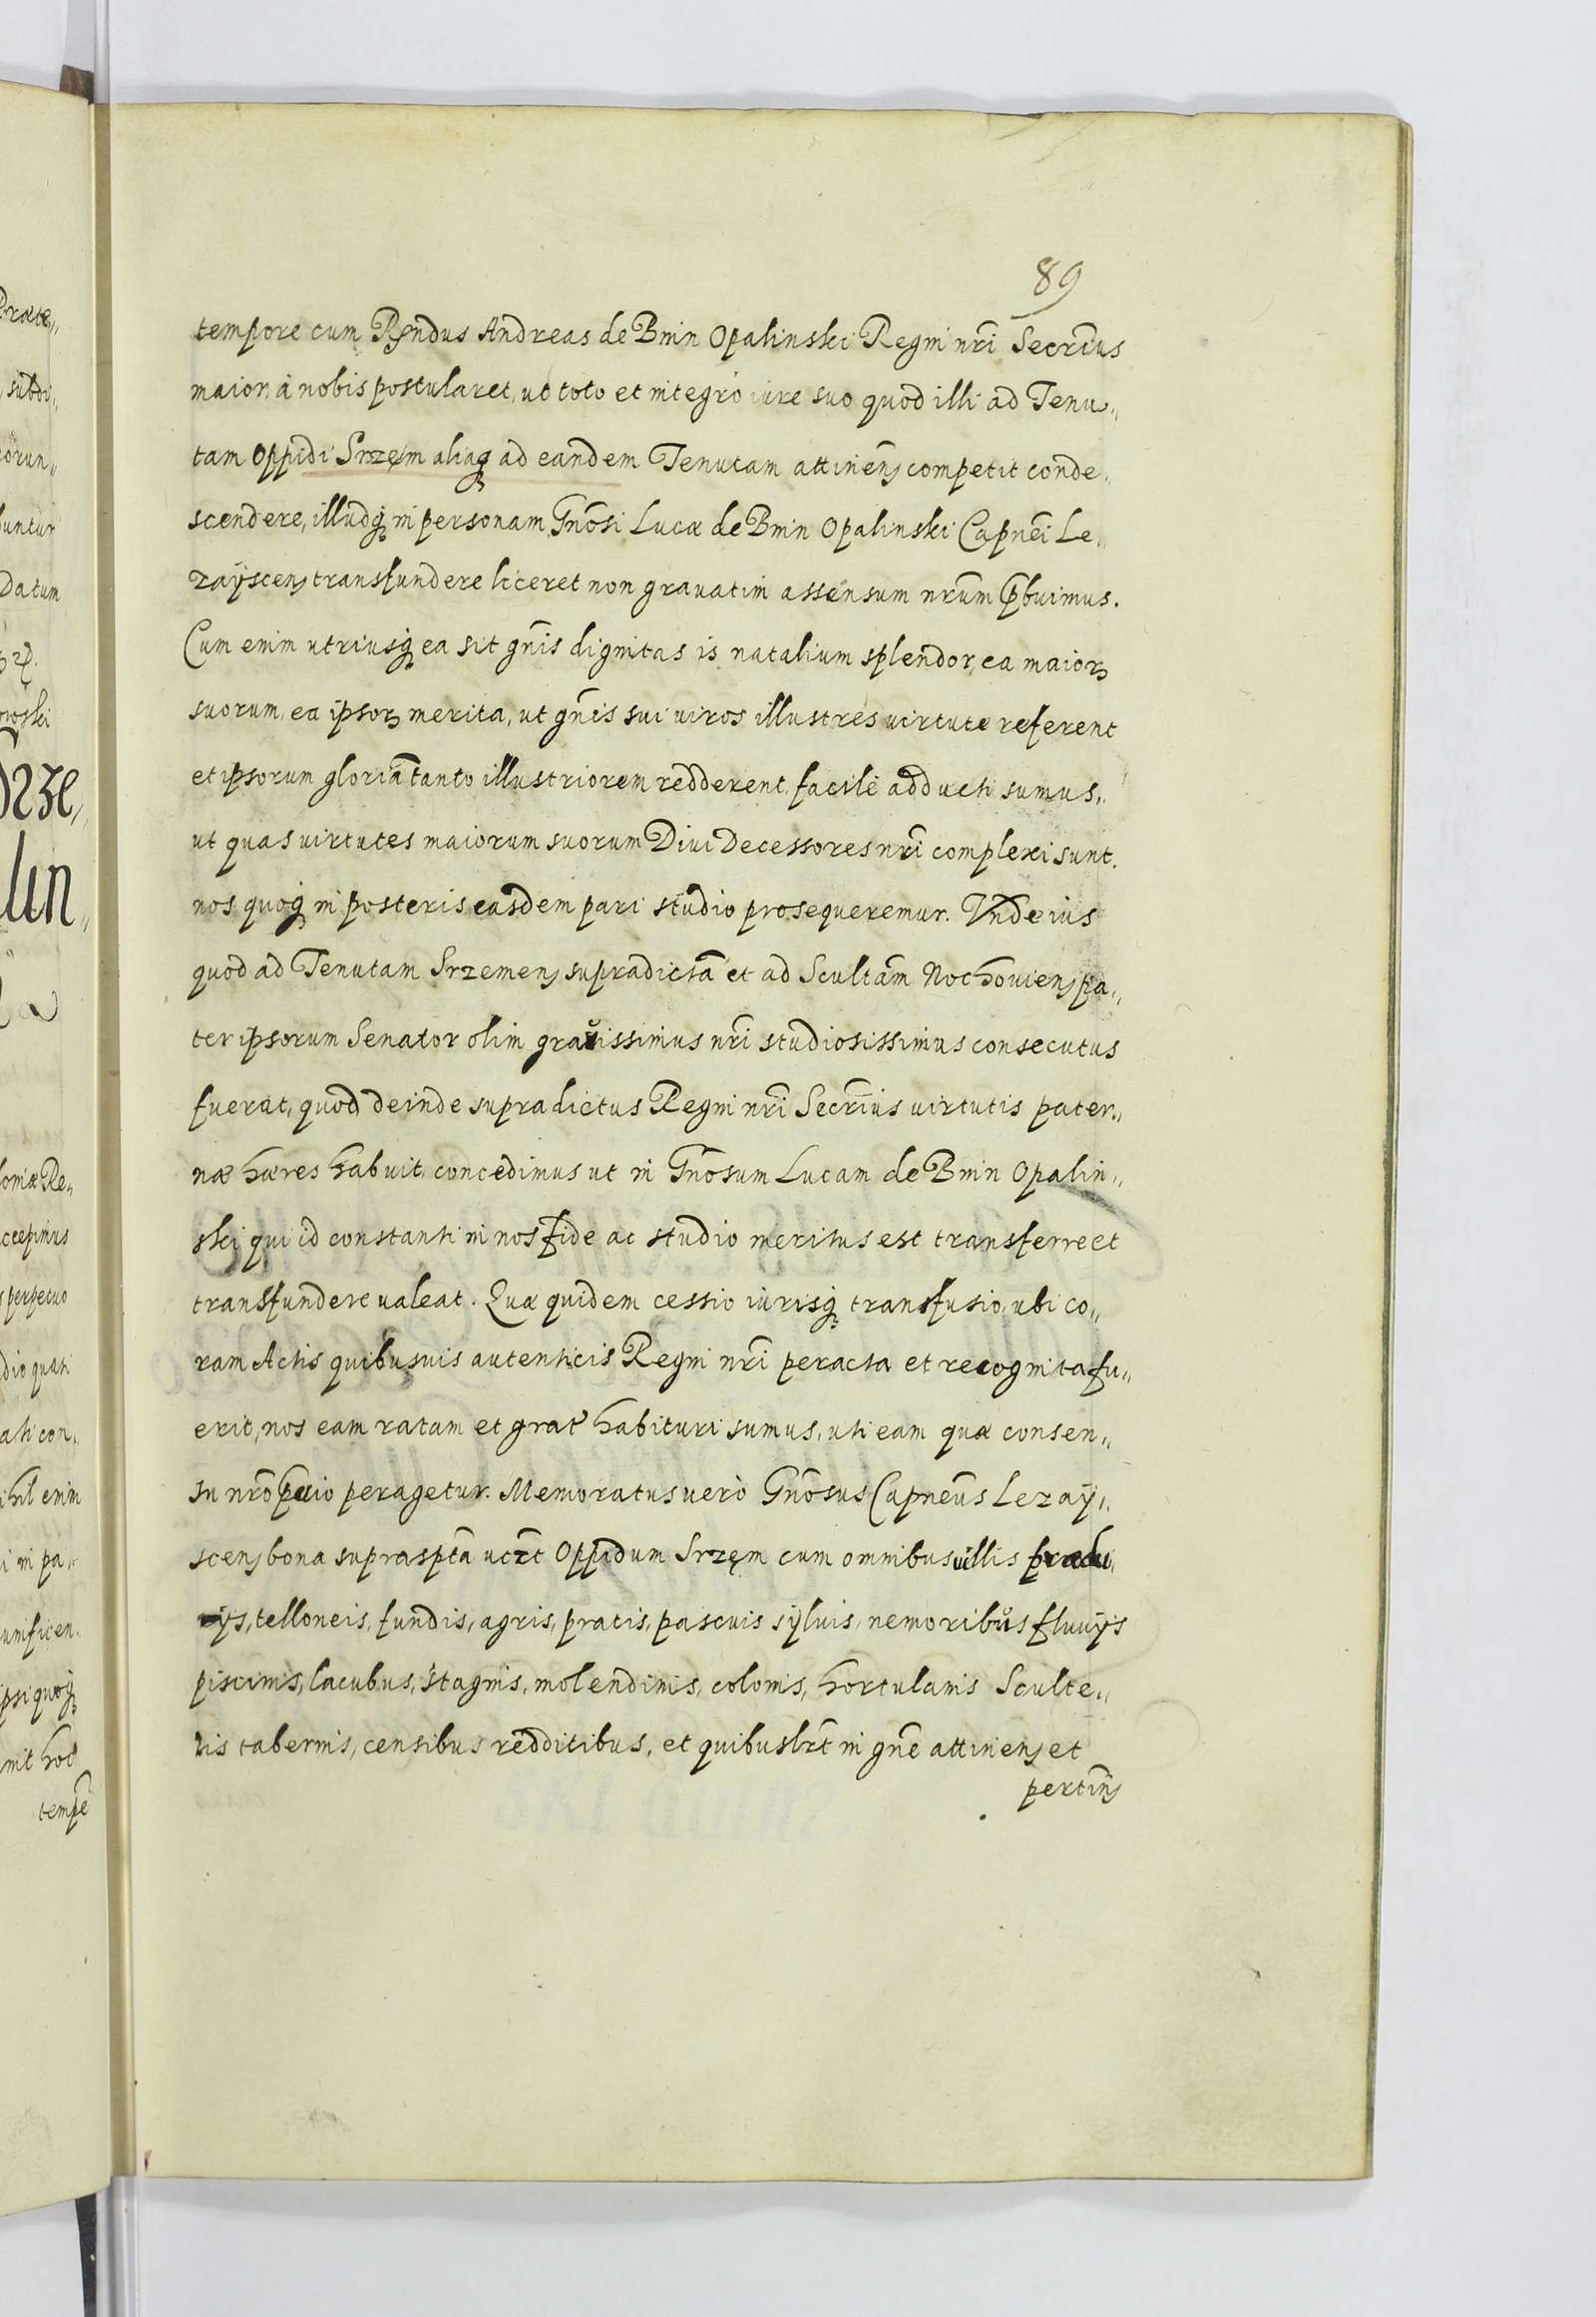 89
tempore cum Rndus Andreas de Bnin Opalinski Regni nri Secrius
maior, à nobis postularet, ut toto et integro iure suo quod illi ad Tenu„
tam Oppidi Srzęm aliaq ad eandem Tenutam attinen competit conde„
scendere, illudq in personam Gnosi Lucæ de Bnin Opalinski Capnei Le„
zayscen transfundere liceret non gravatim assensum nrum pbuimus.
Cum enim utriusq ea sit gnis dignitas is natalium splendor, ea maior
suorum, ea ipsor merita, ut gnis sui viros illustres virtute referent
et ipsorum gloriã tanto illustriorem redderent, facilè adducti sumus,
ut quas virtutes maiorum suorum Divi Decessores nri complexi sunt,
nos quoq in posteris easdem pari studio prosequeremur. Vnde ius
quod ad Tenutam Srzemen supradictã et ad Scultam Nochovien pa„
ter ipsorum Senator olim gravissimus nri studiosissimus consecutus
fuerat, quod deinde supradictus Regni nri Secrius virtutis pater„
næ hæres habuit, concedimus ut in Gnosum Lucam de Bnin Opalin„
ski qui id constanti in nos fide ac studio meritus est transferre et
transfundere valeat. Quæ quidem cessio iurisq transfusio, ubi co„
ram Actis quibusvis autenticis Regni nri peracta et recognita fu„
erit, nos eam ratam et grat habituri sumus, uti eam quæ consen„
su nro pvio peragetur. Memoratus verò Gnosus Capneus Lezay„
scen bona supraspta utzt Oppidum Srzęm cum omnibus villis prædi
ijs, telloneis, fundis, agris, pratis, pascuis sylvis, nemoribus fluvijs
piscinis, lacubus, stagnis, molendinis, colonis, hortulanis Sculte„
tis tabernis, censibus redditibus, et quibuslzt in gne attinen et
pertin